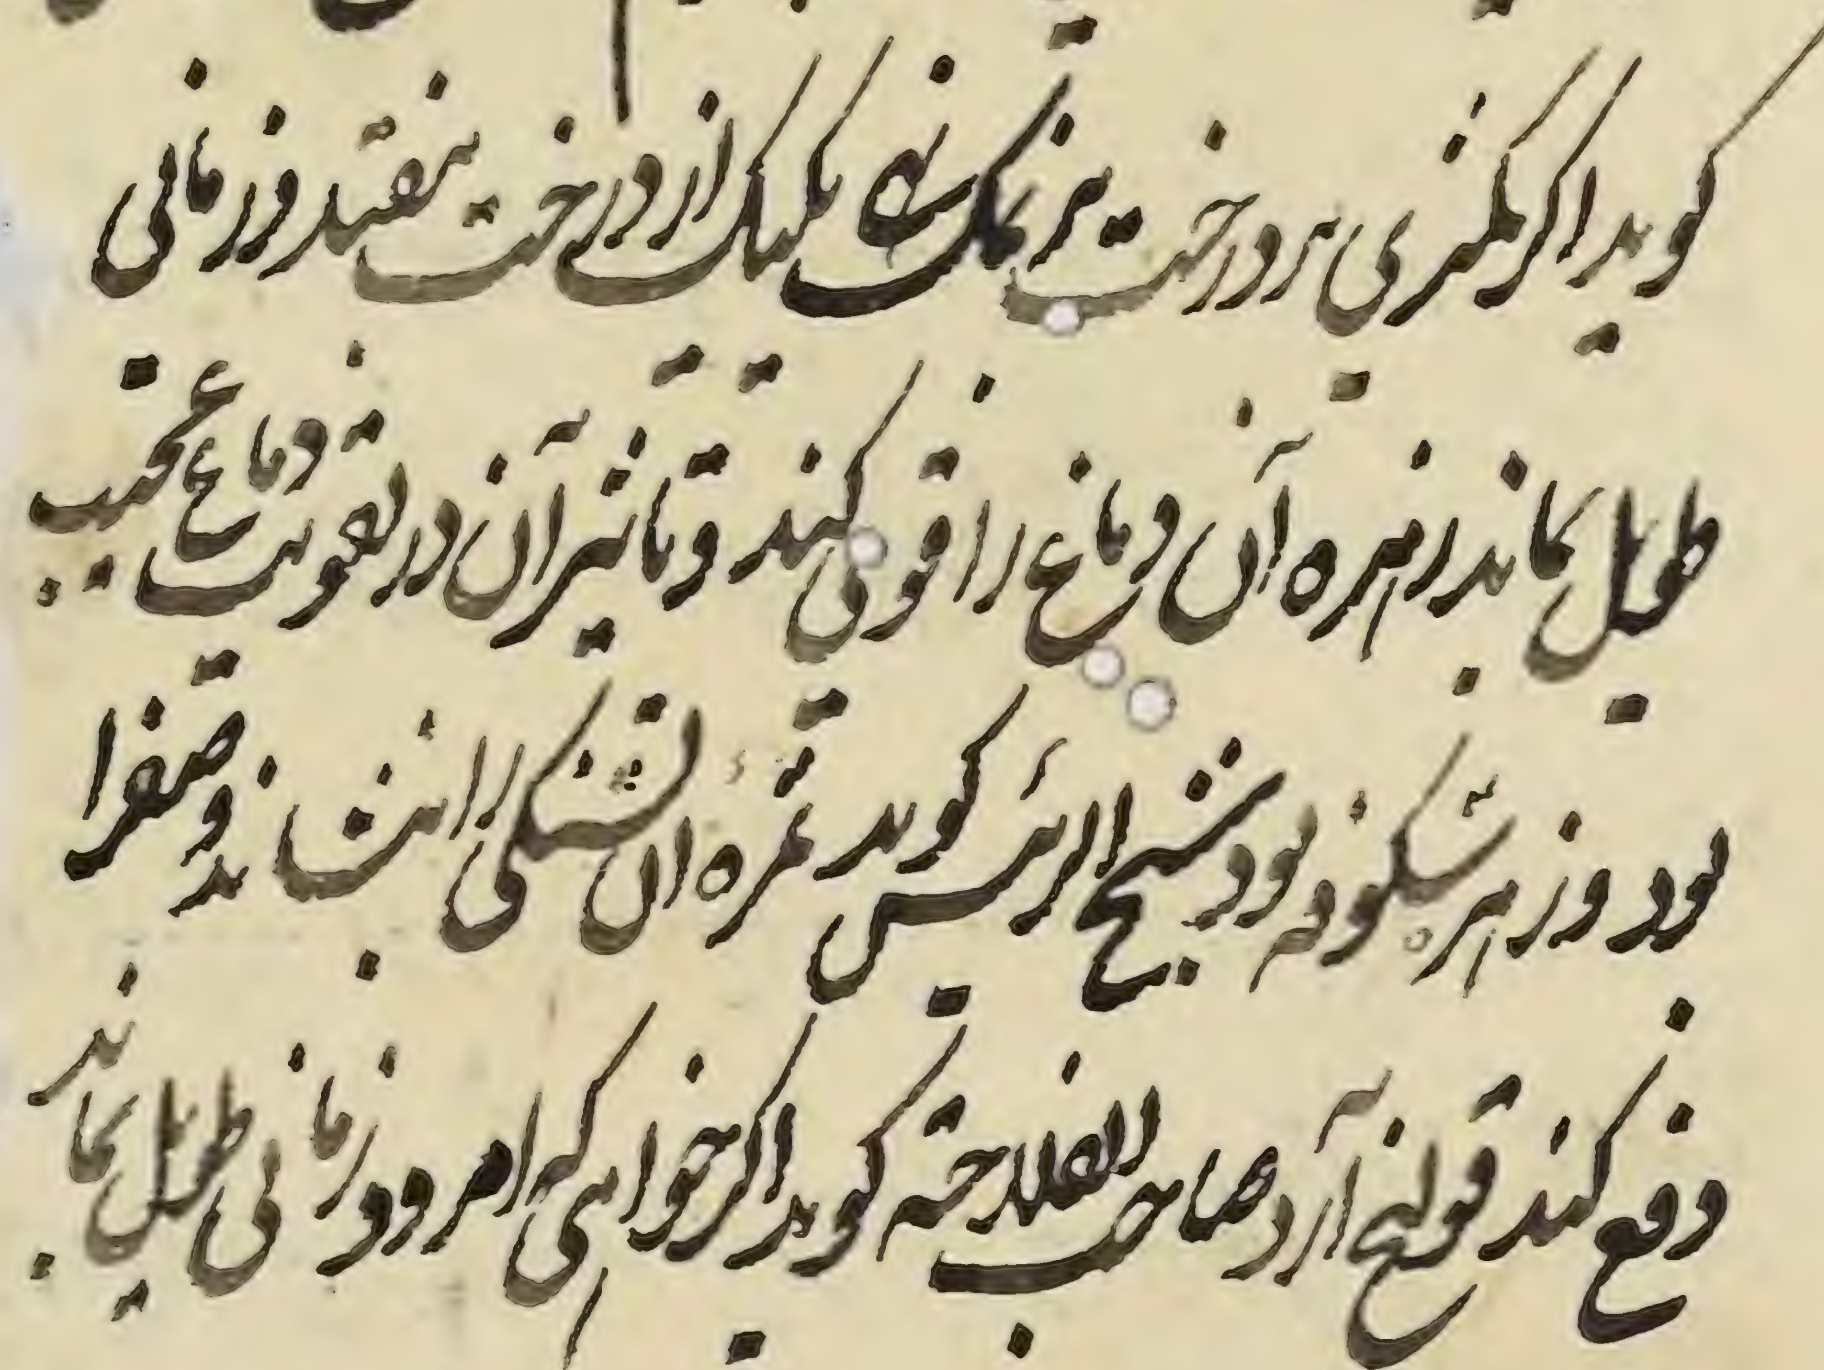 کوید اکر کمثری بر درخت بر نمک نهی یکیک از درخت بیفتد و زمانی
طویل بماند زهره آن دماغ را قوی کند و تاثیر آن در تقویت دماغ عجب
بود و زهر شکوفه بود شیخ الرئیس کوید ثمره ان تشنکی را بنشاند و صفرا
دفع کند قولنج آرد صاحب الفلاحة کوید اکر خواهی که امرود زمانی طویل بماند